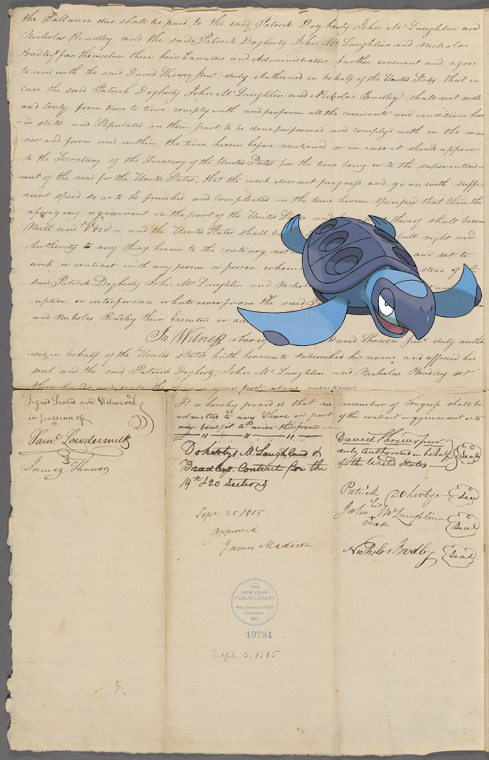 the Ballance due shall be paid to the said Patrick Dogherty John McLaughlin and
Nicholas Bradley and the said Patrick Dogherty John McLaughlin and Nicholas
Bradley for themselves there heirs Executors and Administrators further covenant and agree
to and with the said David Shriver junr duly Authorised in behalf of the United States that in
case the said Patrick Dogherty John McLaughlin and Nicholas Bradley shall not well
and truly from time to time comply with and perform all the covenants and conditions here
in stated and Stipulated on them part to be done performed and complyd with in the man
ner and form and within the time herein before mentioned or in case it should appear
to the Secretary of the Treasury of the United States for the time being or to the superintend
ant of the road for the United States, that the work does not progress and go on with suffi
cient speed so as to be finished and compleated in the time herein specified that then the
aforegoing agreement on the part of the United States and thereof shall become
Null and Void and the United States shall full right and
Authority to any thing herein to the contrary not and set to
work or contract with any person or persons whom stead of the
said Patrick Dogherty John McLaughlin and Nicholas
uption or interference whatsoever from the said
and Nicholas Bradley their Executors or
In Witness whereof David Shriver junr duly autho
rised in behalf of the United States hath hereunto subscribed his name and affixed his
seal and the said Patrick Dogherty John McLaughlin and Nicholas Bradley set
Signed Sealed and Delivered
in presence of
Saml Loudermilk
James Shriver
It is hereby provided that no member of Congress shall be
admitted to any Share or part of the contract or agreement or to
any benefit to arise therefrom
Dohertys McLaughland &
Bradleys Contract for the
19th & 20 sections
Sept 25 1815
Approved
James Madison
David Shriver junr
duly Authorised in behalf
of the United States
Seal
Patrick Doherty Seal
John his McLaughlin Seal
mark
Nicholas Bradley Seal
THE
NEW YORK
PUBLIC LIBRARY
10784
Sept. 5, 1815